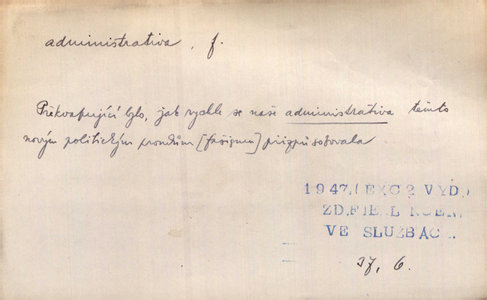 administrativa, f.
Překvapující bylo, jak rychle se naše administrativa těmto
novým politickým proudům [fašismu] přizpůsobovala
1947 (EXC 2 VYD)
ZD. F
VE SLUŽBÁC
37, 6.